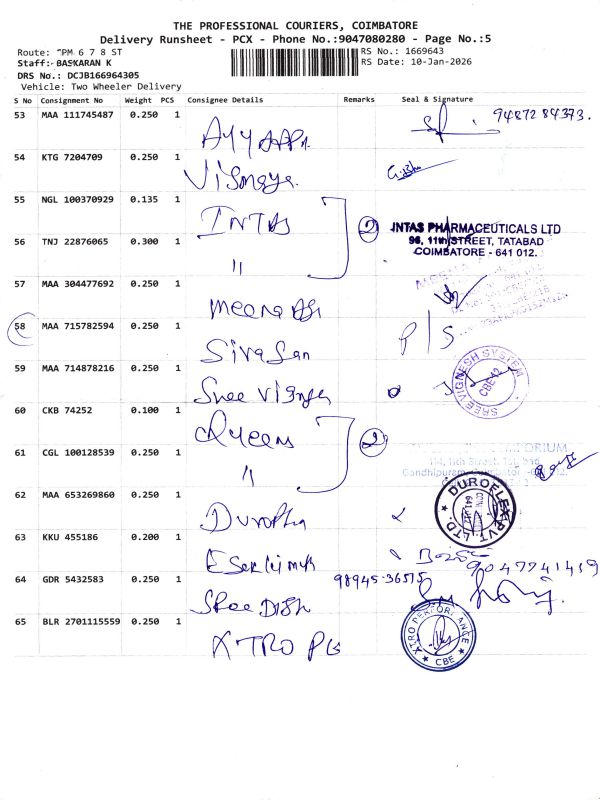 THE PROFESSIONAL COURIERS, COIMBATORE
Delivery Runsheet - PCX - Phone No.:9047080280 - Page No.:5
Route: PM 6 7 8 ST
RS No.: 1669643
Staff: BASKARAN K
RS Date: 10-Jan-2026
DRS No.: DCJB166964305
Vehicle: Two Wheeler Delivery
S No Consignment No Weight PCS Consignee Details Remarks Seal & Signature
53 MAA 111745487 0.250 1 9487284373.
54 KTG 7204709 0.250 1
55 NGL 100370929 0.135 1 INTAS 2 INTAS PHARMACEUTICALS LTD
96, 11th STREET, TATABAD
COIMBATORE - 641 012.
56 TNJ 22876065 0.300 1 "
57 MAA 304477692 0.250 1
58 MAA 715782594 0.250 1 Sivasan P/S
59 MAA 714878216 0.250 1 Sree SREE VIGNESH SYSTEM CBE-12
60 CKB 74252 0.100 1 Queens 2
61 CGL 100128539 0.250 1 "
62 MAA 653269860 0.250 1 DUROFLEX PVT. LTD.
63 KKU 455186 0.200 1 9047741419
64 GDR 5432583 0.250 1 Sree Dish 98945-36515
65 BLR 2701115559 0.250 1 XTRO XTRO PERFORMANCE CBE